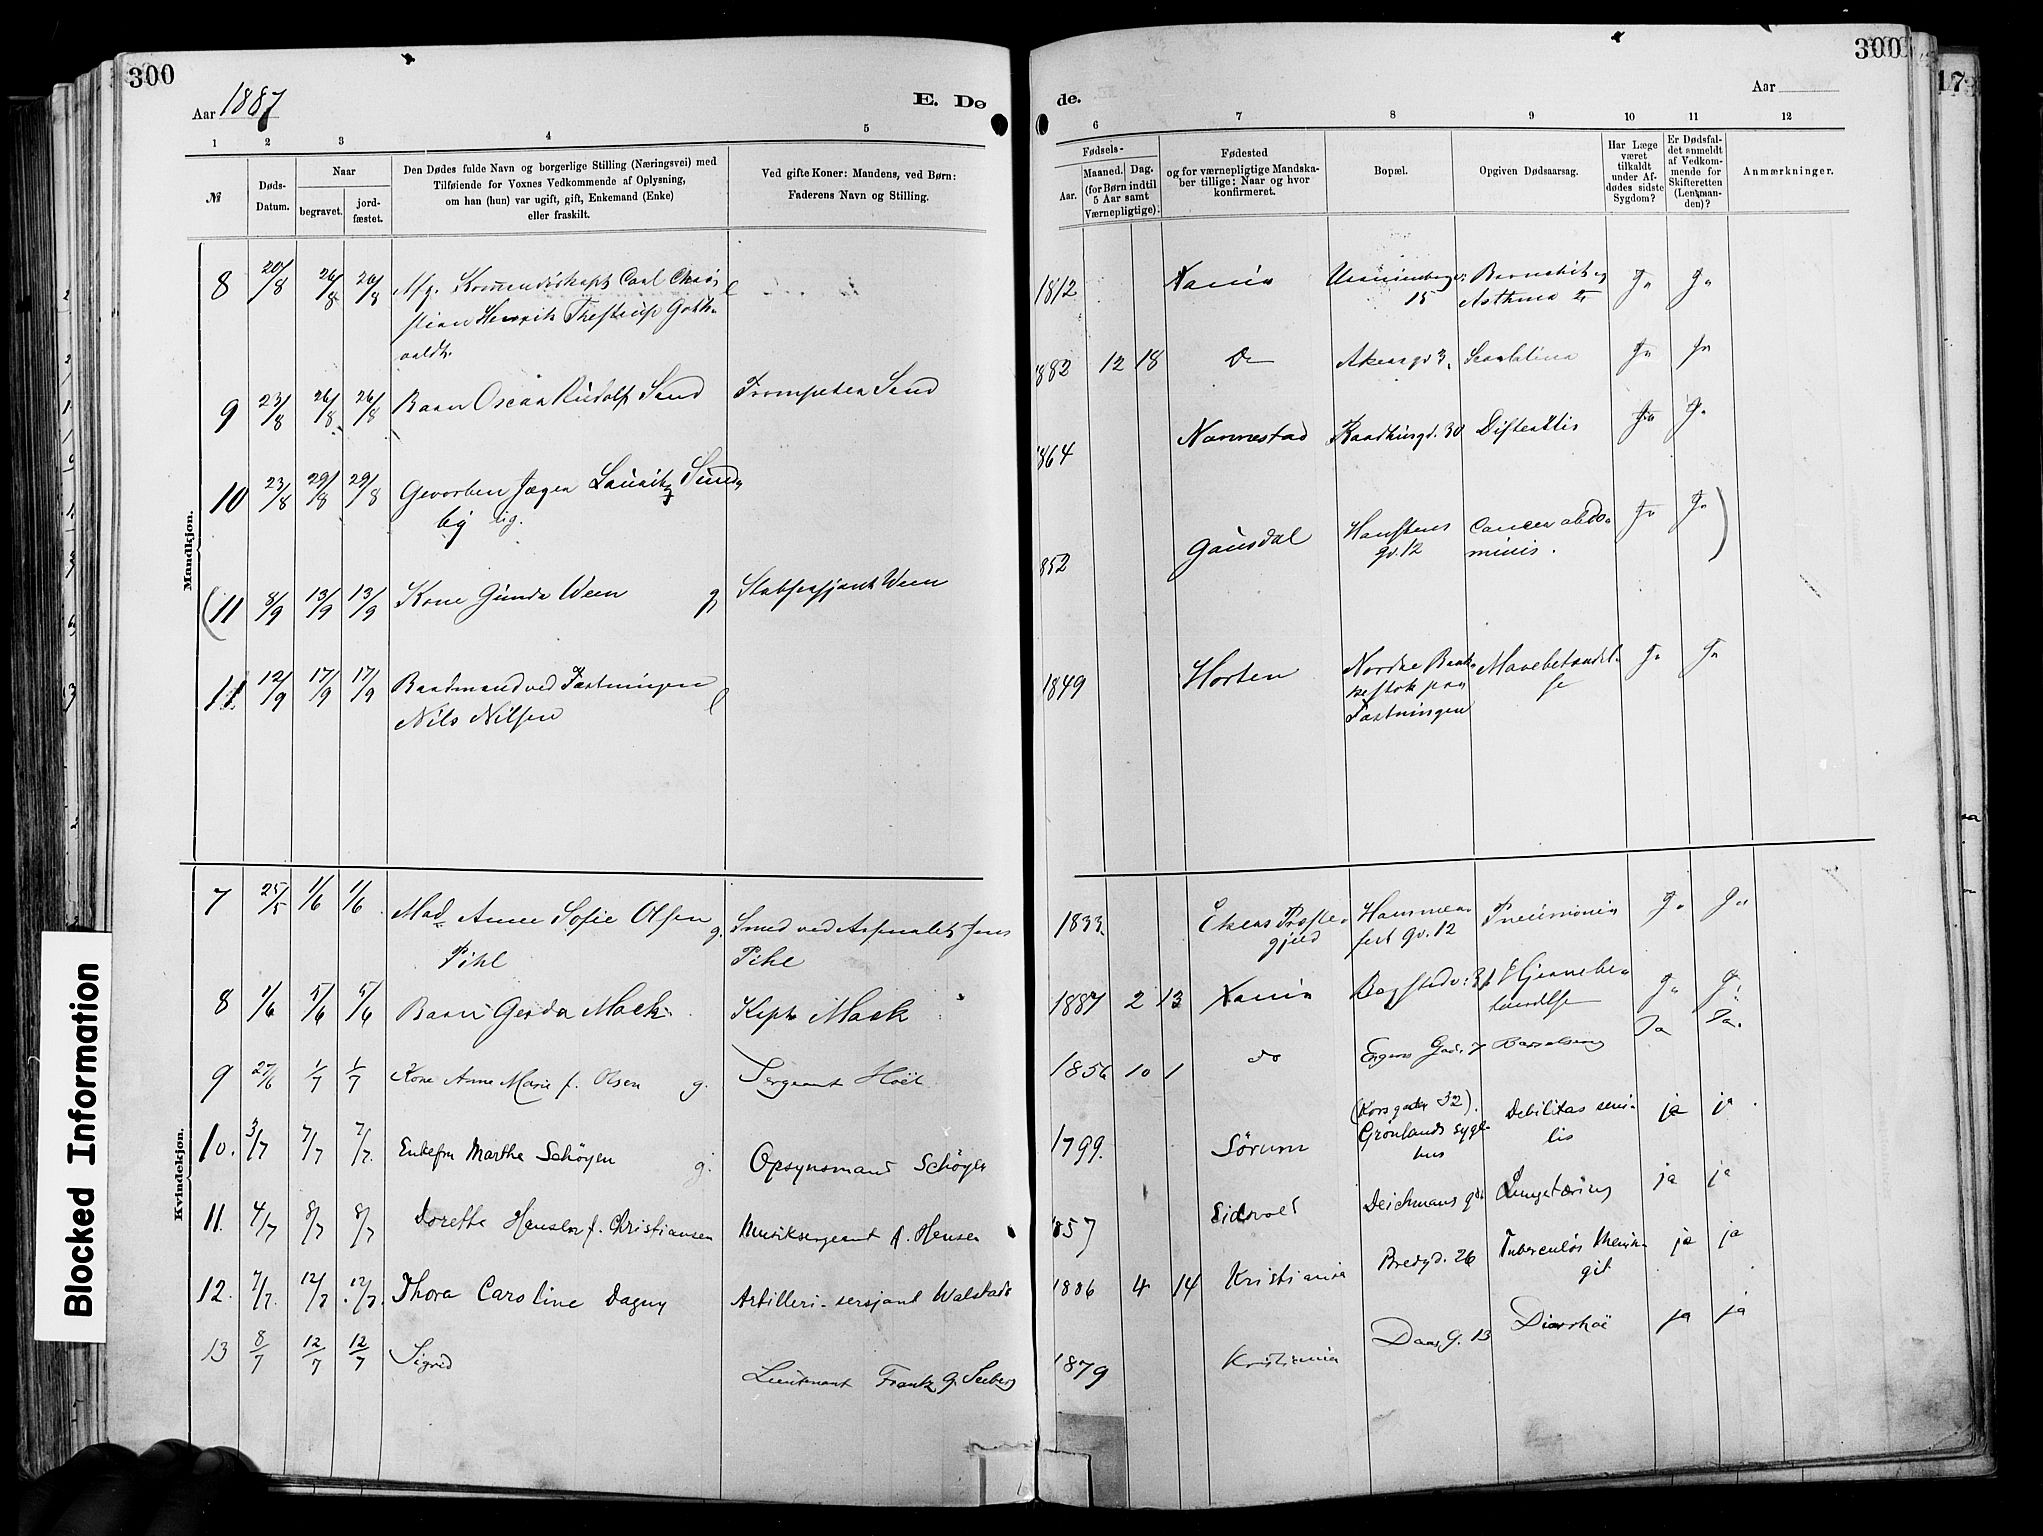 300
Aar 1887
E. Dø
de.
300
Aar
17
1 2 3 4 5 6 7 8 9 10 11 12
№
Døds-
Datum.
Naar
begravet.
jord-
fæstet.
Den Dødes fulde Navn og borgerlige Stilling (Næringsvei) med
Tilføiende for Voxnes Vedkommende af Oplysning,
om han (hun) var ugift, gift, Enkemand (Enke)
eller fraskilt.
Ved gifte Koner: Mandens, ved Børn:
Faderens Navn og Stilling.
Fødsels-
Aar.
Maaned. Dag.
(for Børn indtil
5 Aar samt
Værnepligtige):
Fødested
og for værnepligtige Mandska-
ber tillige: Naar og hvor
konfirmeret.
Bopæl.
Opgiven Dødsaarsag.
Har Læge
været
tilkaldt
under Af-
dødes sidste
Sygdom?
Er Dødsfal-
det anmeldt
af Vedkom-
mende for
Skifteretten
(Lensman-
den)?
Anmærkninger.
Mandkjøn.
8 20/8 26/8 26/8 Carl Chri- 1812 Xania Ja Ja
stian Henrik Thestrup 15 Asthma
9 23/8 26/8 26/8 Barn Oscar Rudolf Sand Trompeter Sand 1882 12 18 Do Akersgd 3. Scarlatina Ja Ja
10 23/8 29/8 29/8 Gevorben Jæger Lauritz Sund- 1864 Nannestad Raadhusgd. 30 Difteritis Ja Ja
by ug.
(11 8/9 13/9 13/9 Kone Gunda Ween g. Stabsersjant Ween 1852 Gausdal Hansteens Cancer abdo- Ja Ja)
gd. 12 minis.
11 12/9 17/9 17/9 Baadmand ved Fæstningen 1849 Horten Nordre Mavebetændel- Ja Ja
Nils Nilsen paa se
Fæstningen
Kvindekjøn.
7 25/5 1/6 1/6 Mad. Anne Sofie Olsen g. Smed ved Arsenalet Jens 1833. Præste- Hammer- Pneumonia Ja Ja
Pihl Pihl gjeld fest gd. 12
8 1/6 5/6 5/6 Barn Gerda Mack Kapt Mack 1887 2 13 Xania Bogstadv. 31 Hjernebe- Ja Ja
tændelse
9 27/6 1/7 1/7 Kone Anne Marie f. Olsen g. Sergeant Høel 1856 10 1 do Gade 7 Barselseng Ja Ja.
10. 3/7 7/7 7/7. Enkefru Marthe Schøyen g. Opsynsmand Schøyen 1799. Sørum (Korsgaden 32). Debilitas seni- ja ja
Grønlands syge- lis
hus
11. 4/7 8/7 8/7 Dorette Hansen f. Christiansen Musiksergeant A. Hansen 1857 Eidsvold Deichmans gd. Lungetæring ja ja
12. 7/7. 12/7 12/7. Thora Caroline Dagny Artilleri-sersjant Walstad 1886 4 14 Kristiania Bredgd. 26 Tuberculøs Menin- ja ja
git
13 8/7 12/7 12/7 Sigrid Lieutenant Frantz G. Seeberg 1879 Kristiania Daas G. 13 Diarrhøe ja ja
Blocked Information